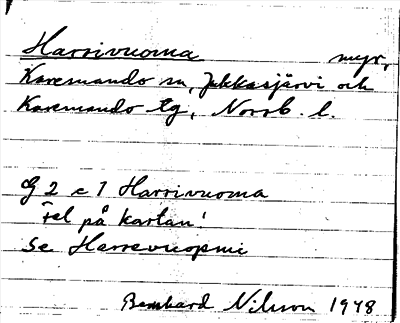 Harrivuoma myr,
Karesuando sn, Jukkasjärvi och
Karesuando tg, Norrb. l.
G 2 c 1 Harrivuoma
fel på kartan!
Se Harrevuopmi
Bernhard Nilsson 1948